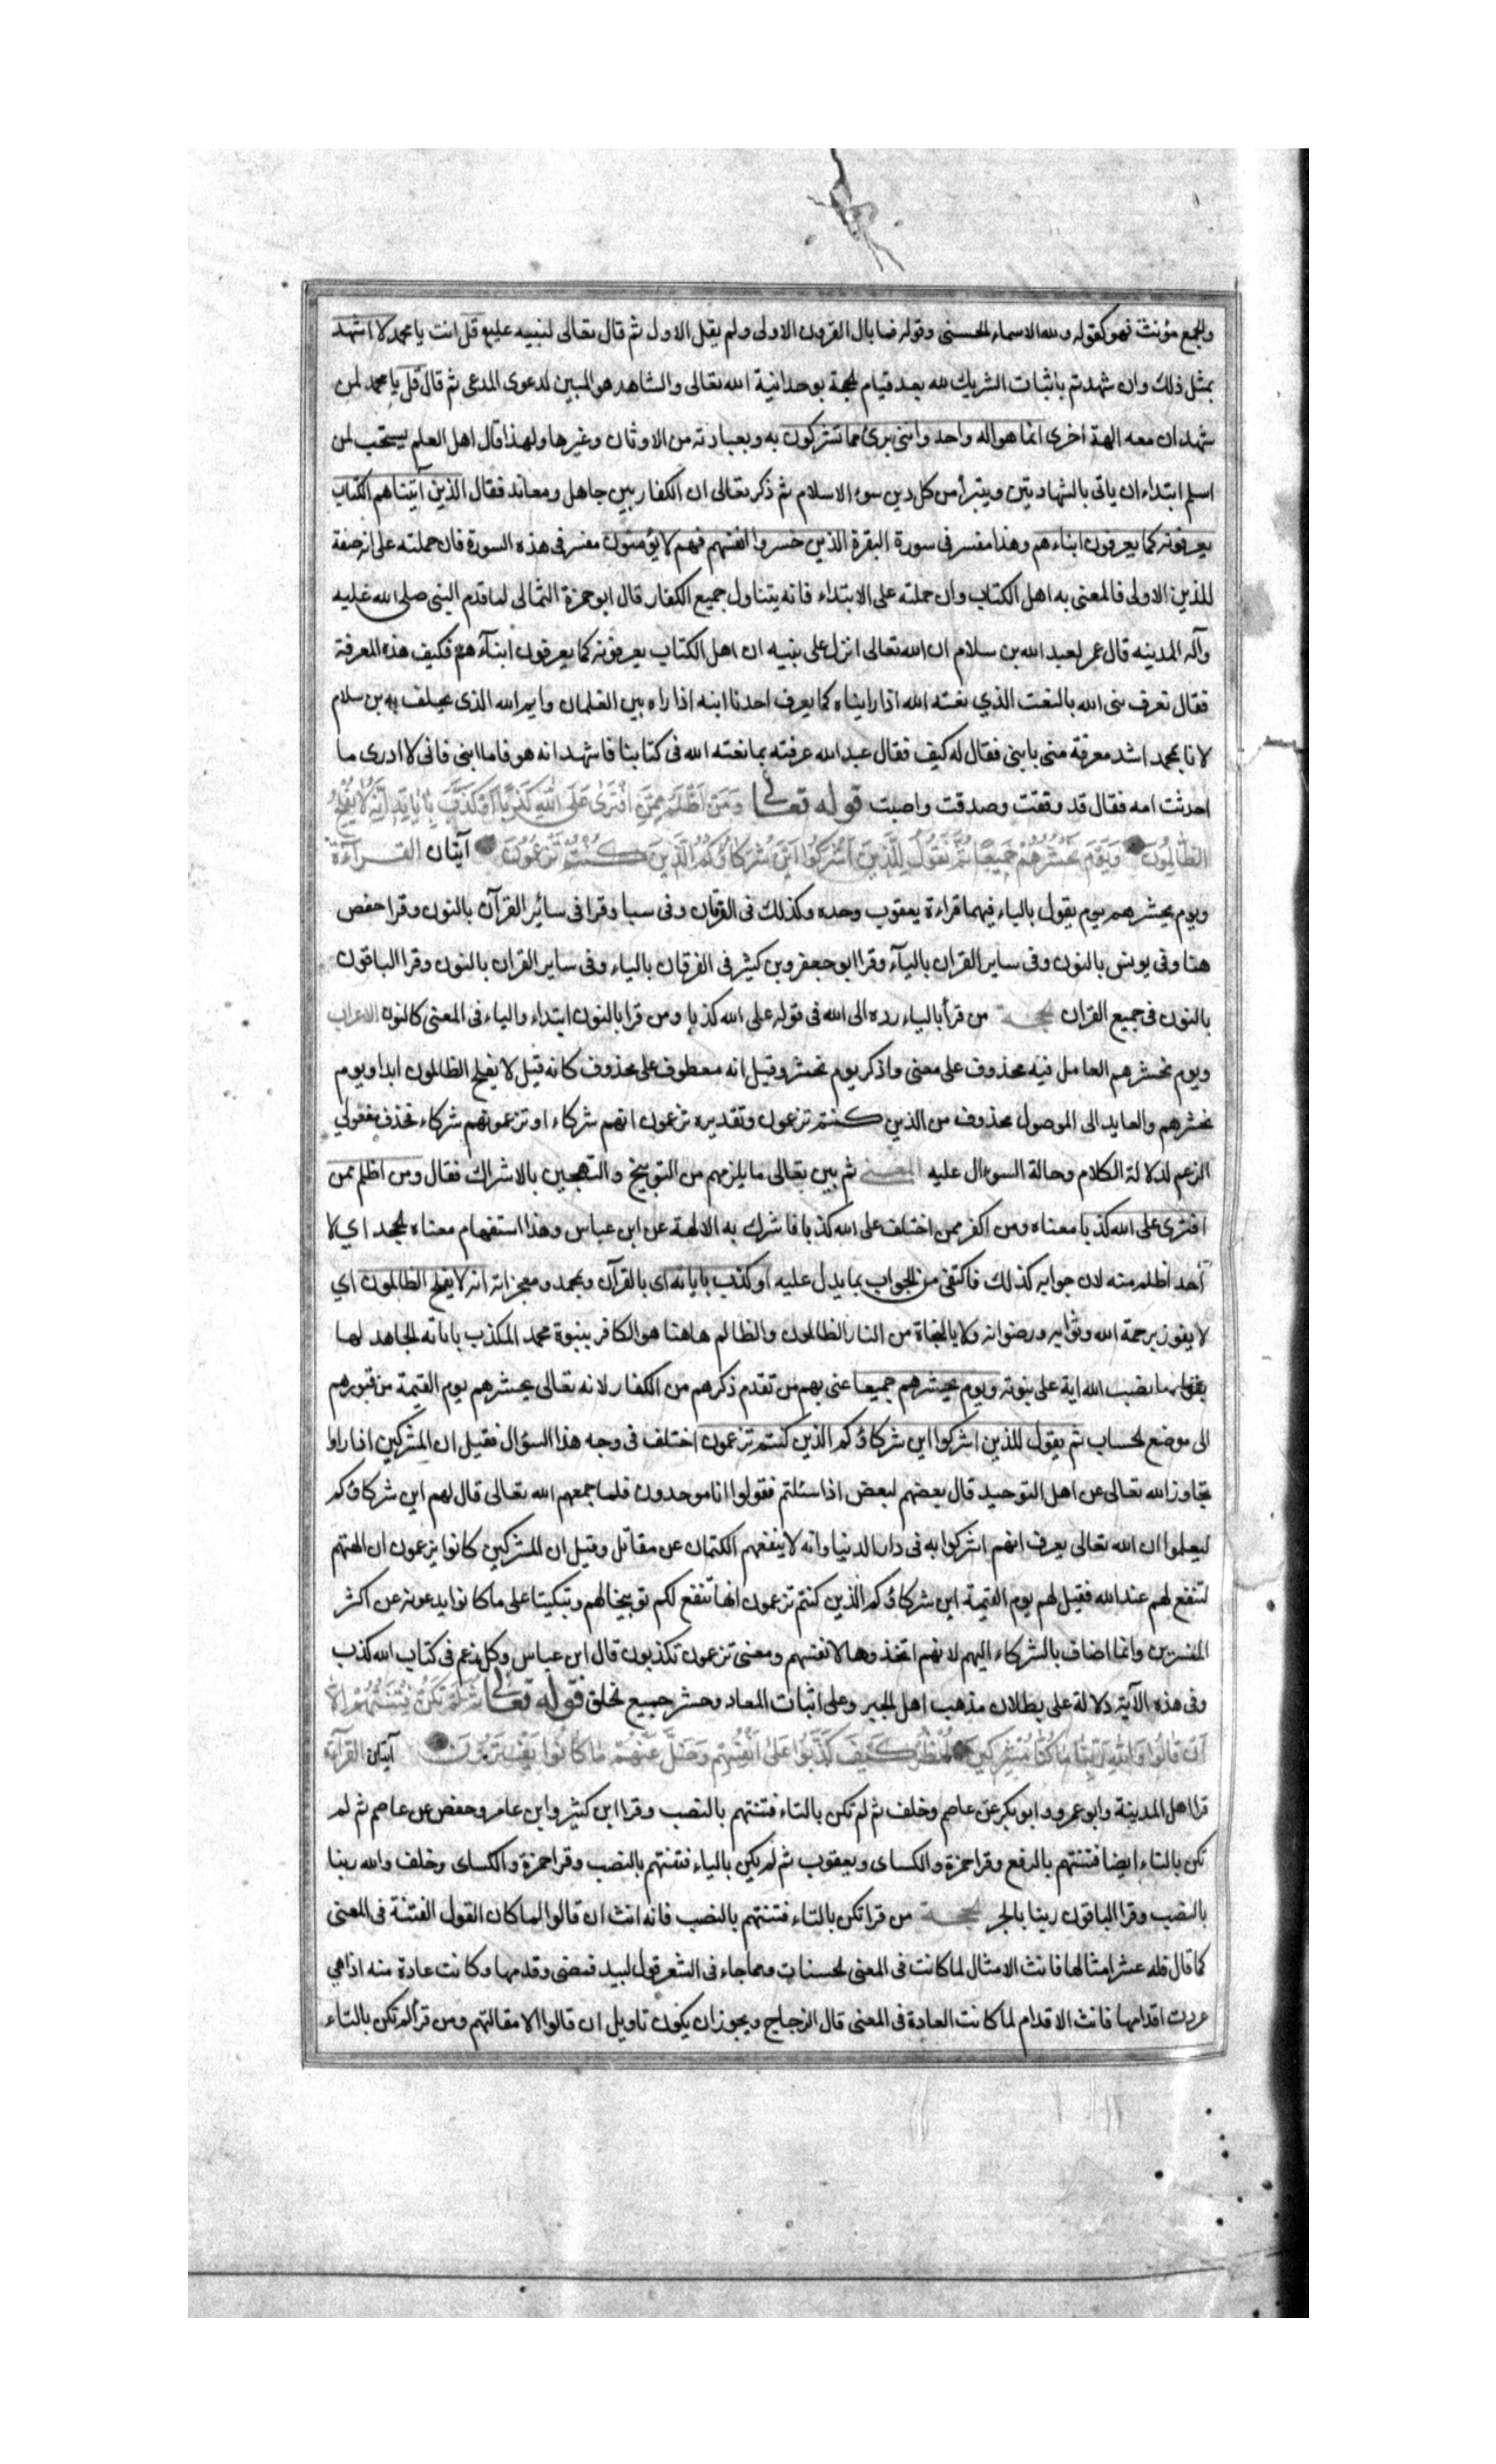 والجمع مؤنث فهو كقوله ولله الاسماء الحسنى وقوله فما بال القرون الاولى ولم يقل الاول ثم قال تعالى لنبيه عليه قل انت يا محمد لا اشهد
بمثل ذلك وان شهدتم باثبات الشريك لله بعد قيام الحجة بوحدانية الله تعالى والشاهد هو المبين لدعوى المدعى ثم قال قل يا محمد لمن
شهد ان معه الهة اخرى انما هو اله واحد واننى برئ مما تشركون به وبعبادته من الاوثان وغيرها ولهذا قال اهل العلم يستحب لمن
اسلم ابتداء ان ياتى بالشهادتين ويتبرأ من كل دين سوى الاسلام ثم ذكر تعالى ان الكفار بين جاهل ومعاند فقال الذين آتيناهم الكتاب
يعرفونه كما يعرفون ابناءهم وهذا مفسر فى سورة البقرة الذين خسروا انفسهم فهم لا يؤمنون مفسر فى هذه السورة فان حملته على انه صفة
للذين الاولى فالمعنى به اهل الكتاب وان حملته على الابتداء فانه يتناول جميع الكفار قال ابو حمزة الثمالى لما قدم النبى صلى الله عليه
وآله المدينه قال عمر لعبد الله بن سلام ان الله تعالى انزل على نبيه ان اهل الكتاب يعرفونه كما يعرفون ابناءهم فكيف هذه المعرفة
فقال نعرف نبى الله بالنعت الذي نعته الله اذا رايناه كما يعرف احدنا ابنه اذا راه بين الغلمان وايم الله الذى يحلف به بن سلام
لانا بمحمد اشد معرفة منى بابنى فقال له كيف فقال عبد الله عرفته بما نعته الله فى كتابنا فاشهد انه هو فاما ابنى فانى لا ادرى ما
احدثت امه فقال قد وفقت وصدقت واصبت قوله تعالى وَمَنْ اَظْلَمُ مِمَّنِ افْتَرٰى عَلَى اللهِ كَذِبًا اَوْ كَذَّبَ بِاٰيَاتِهِ اِنَّهُ لَا يُفْلِحُ
الظّالِمُونَ وَيَوْمَ نَحْشُرُهُمْ جَمِيعًا ثُمَّ نَقُولُ لِلَّذِينَ اَشْرَكُوا اَيْنَ شُرَكَاؤُكُمُ الَّذِينَ كُنْتُمْ تَزْعُمُونَ آيتان القراءة
ويوم يحشرهم يوم يقول بالياء فيهما قراءة يعقوب وحده وكذلك فى الفرقان وفى سبا وقرا فى سائر القرآن بالنون وقرا حفص
هنا وفى يونس بالنون وفى ساير القران بالياء وقرا ابو جعفر وبن كثير فى الفرقان بالياء وفى ساير القران بالنون وقرا الباقون
بالنون فى جميع القران الحجة من قرأ بالياء رده الى الله فى قوله على الله كذبا ومن قرا بالنون ابتداء والياء فى المعنى كالنون الاعراب
ويوم نحشرهم العامل فيه محذوف على معنى واذكر يوم نحشر وقيل انه معطوف على محذوف كانه قيل لا يفلح الظالمون ابدا ويوم
نحشرهم والعايد الى الموصول محذوف من الذين كنتم تزعمون وتقديره تزعمون انهم شركاء او تزعمونهم شركاء فحذف مفعولي
الزعم لدلالة الكلام وحالة السؤال عليه المعنى ثم بين تعالى ما يلزمهم من التوبيخ والتهجين بالاشراك فقال ومن اظلم ممن
افترى على الله كذبا معناه ومن اكفر ممن اختلف على الله كذبا فاشرك به الالهة عن ابن عباس وهذا استفهام معناه الجحد اي لا
أحد اظلم منه لان جوابه كذلك فاكتفى من الجواب بما يدل عليه او كذب باياته اى بالقرآن وبمحمد ومعجزاته انه لا يفلح الظالمون اي
لا يفوز برحمة الله وثوابه ورضوانه ولا بالنجاة من النار الظالمون والظالم هاهنا هو الكافر بنبوة محمد المكذب باياته الجاهد لها
بقوله ما نصب الله اية على نبوته ويوم يحشرهم جميعا عنى بهم من تقدم ذكرهم من الكفار لانه تعالى يحشرهم يوم القيمة من قبورهم
الى موضع الحساب ثم يقول للذين اشركوا اين شركاؤكم الذين كنتم تزعمون اختلف فى وجه هذا السؤال فقيل ان المشركين اذا راوا
تجاوز الله تعالى عن اهل التوحيد قال بعضهم لبعض اذا سئلتم فقولوا انا موحدون فلما جمعهم الله تعالى قال لهم اين شركاؤكم
ليعلموا ان الله تعالى يعرف انهم اشركوا به فى دار الدنيا وانه لا ينفعهم الكتمان عن مقاتل وقيل ان المشركين كانوا يزعمون ان الهتهم
لتنفع لهم عند الله فقيل لهم يوم القيمة اين شركاؤكم الذين كنتم تزعمون انها تنفع لكم توبيخا لهم وتبكيتا على ما كانوا يدعونه عن اكثر
المفسرين وانما اضاف بالشركاء اليهم لانهم اتخذوها لانفسهم ومعنى تزعمون تكذبون قال ابن عباس وكل زعم فى كتاب الله كذب
وفى هذه الآية دلالة على بطلان مذهب اهل الجبر وعلى اثبات المعاد وحشر جميع الخلق قوله تعالى ثُمَّ لَمْ تَكُنْ فِتْنَتُهُمْ اِلَّا
اَنْ قَالُوا وَاللهِ رَبِّنَا مَا كُنَّا مُشْرِكِينَ اُنْظُرْ كَيْفَ كَذَبُوا عَلَى اَنْفُسِهِمْ وَضَلَّ عَنْهُمْ مَا كَانُوا يَفْتَرُونَ آيتان القرآءة
قرا اهل المدينة وابو عمرو وابو بكر عن عاصم وخلف ثم لم تكن بالتاء فتنتهم بالنصب وقرا ابن كثير وابن عامر وحفص عن عاصم ثم لم
تكن بالتاء ايضا فتنتهم بالرفع وقرا حمزة والكساى ويعقوب ثم لم يكن بالياء فتنتهم بالنصب وقرا حمزة والكساى وخلف والله ربنا
بالنصب وقرا الباقون ربنا بالجر الحجة من قرا تكن بالتاء فتنتهم بالنصب فانه انث ان قالوا لما كان القول الفتنة فى المعنى
كما قال فله عشر امثالها فانث الامثال لما كانت فى المعنى الحسنات ومما جاء فى الشعر قول لبيد فمضى وقدمها وكانت عادة منه اذا هي
عردت اقدامها فانث الاقدام لما كانت العادة فى المعنى قال الزجاج ويجوز ان يكون تاويل ان قالوا الا مقالتهم ومن قرأ لم تكن بالتاء